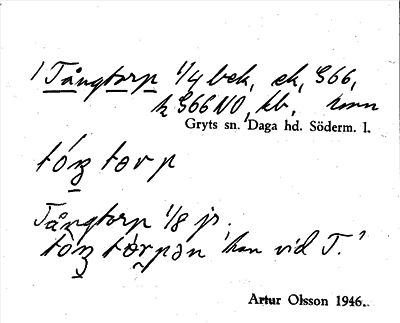 1) Tångtorp 1/4 bek, ek, S66,
k S66 NO, kb,
Gryts sn. Daga hd. Söderm. l.
tóŋ torp
Tångtorp 1/8 jr.
tóŋ tórpən, han vid T.
Artur Olsson 1946.